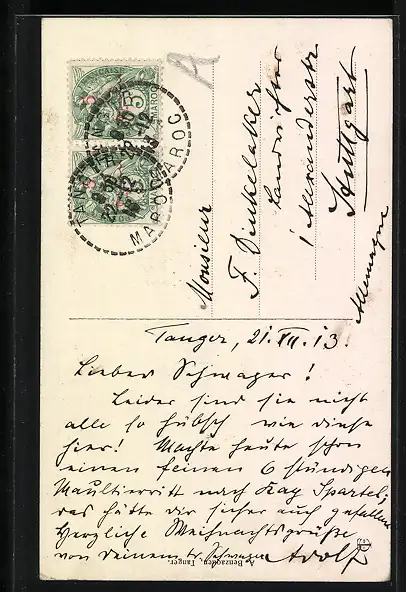 Monsieur
F. Dinkelaker
Landrichter
Alexanderstr
Stuttgart
Allemagne
MAROC
MAROC
TANGER
5
5
Tanger, 21.XII.13.
Lieber Schwager!
Leider sind sie nicht
alle so hübsch wie diese
hier! Machte heute schon
einen feinen 6 stündigen
Maultierritt nach Kap Spartel,
das hätte dir sicher auch gefallen
Herzliche Weihnachtsgrüße
von deinem tr. Schwager Adolf
A. Benzaquen, Tanger.